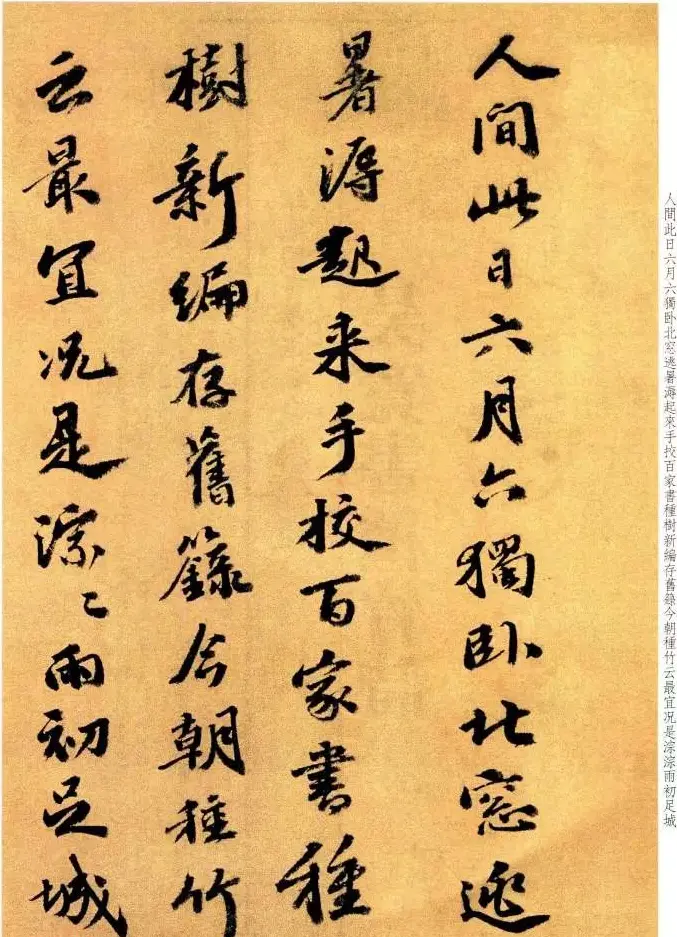 人間此日六月六獨卧北窓逃
暑溽起来手校百家書種
樹新編存舊籙今朝種竹
云最宜况是淙〻雨初足城
人間此日六月六獨卧北窓逃暑溽起來手挍百家書種樹新編存舊籙今朝種竹云最宜况是淙淙雨初足城